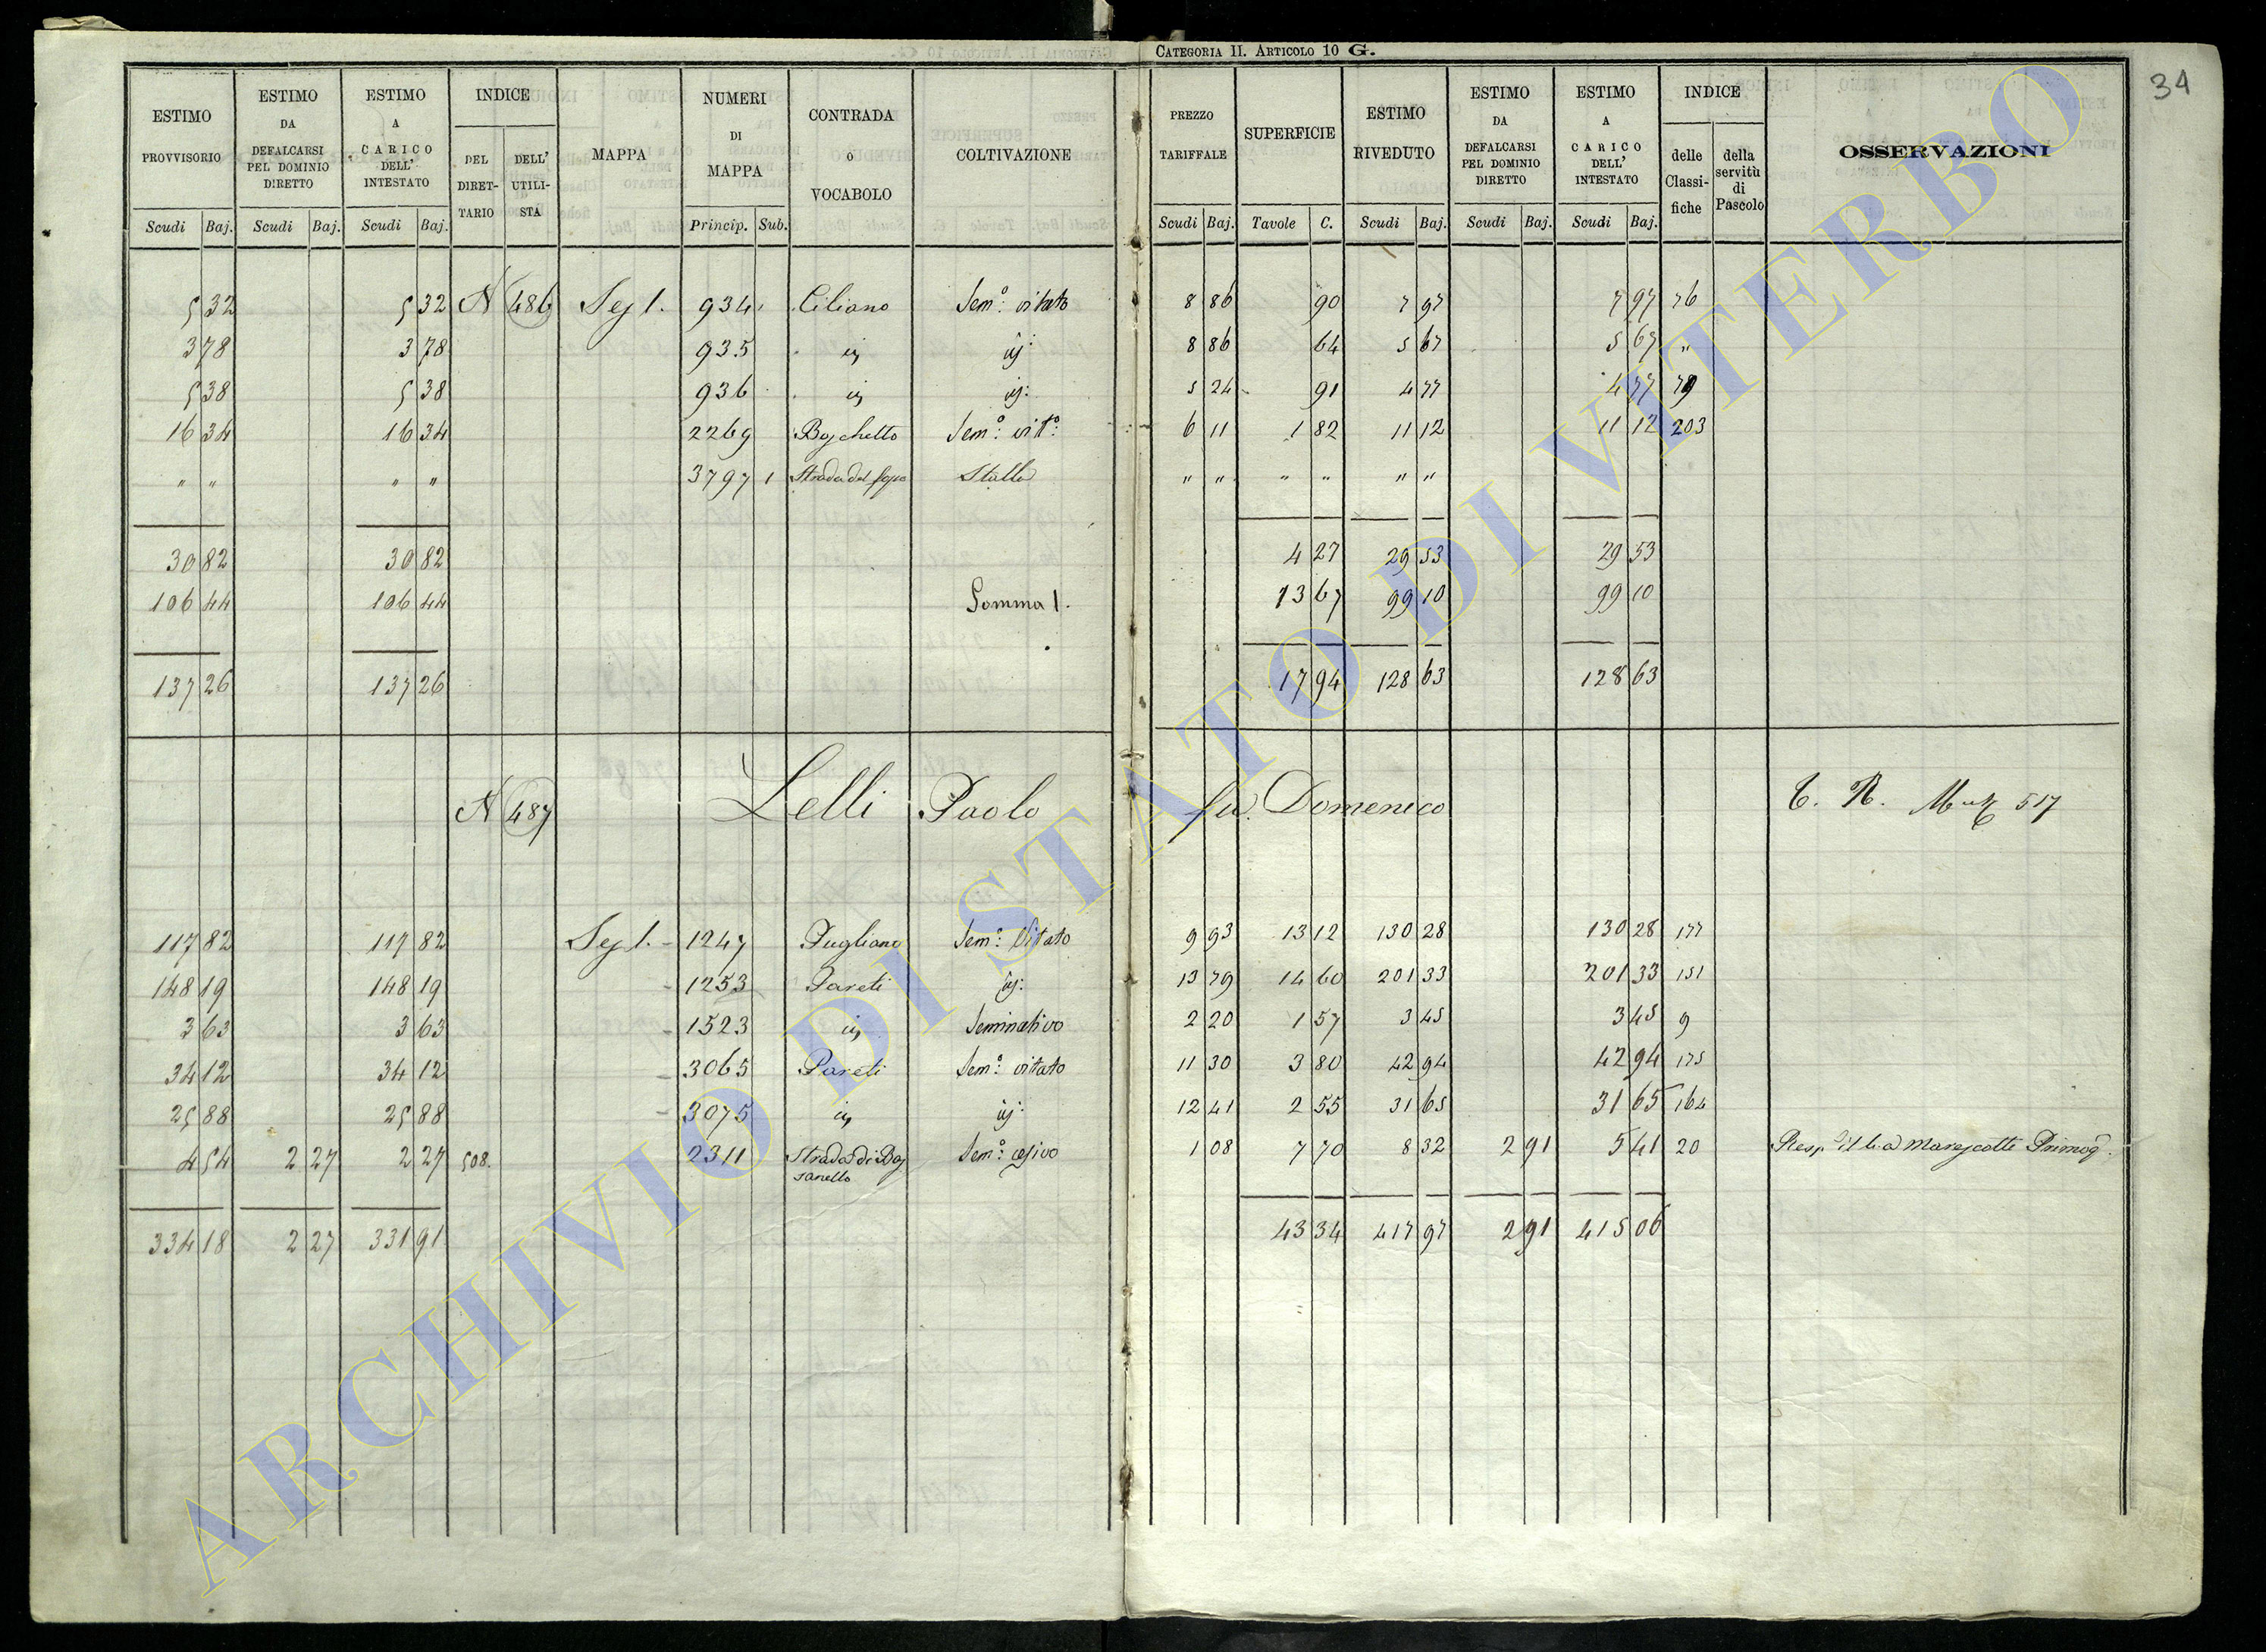 CATEGORIA II. ARTICOLO 10 G.
34
ESTIMO PROVVISORIO Scudi Baj. | ESTIMO DA DEFALCARSI PEL DOMINIO DIRETTO Scudi Baj. | ESTIMO A CARICO DELL' INTESTATO Scudi Baj. | INDICE DEL DIRETTARIO DELL' UTILISTA | MAPPA | NUMERI DI MAPPA Princip. Sub. | CONTRADA O VOCABOLO | COLTIVAZIONE | PREZZO TARIFFALE Scudi Baj. | SUPERFICIE Tavole C. | ESTIMO RIVEDUTO Scudi Baj. | ESTIMO DA DEFALCARSI PEL DOMINIO DIRETTO Scudi Baj. | ESTIMO A CARICO DELL' INTESTATO Scudi Baj. | INDICE delle Classifiche della servitù di Pascolo | OSSERVAZIONI
5 32 5 32 N 486 Sez 1. 934 Ciliano Sem.o vitato 8 86 90 7 97 7 97 76
3 78 3 78 935 8 86 64 5 67 5 67 "
5 38 5 38 936 5 24 91 4 77 4 77 79
16 34 16 34 2269 Boschetto Sem.o vit.o 6 11 1 82 11 12 11 12 203
" " " " 3797 1 Strada del Stalla " " " " " "
30 82 30 82 4 27 29 53 29 53
106 44 106 44 Somma 1. 13 67 99 10 99 10
137 26 137 26 17 94 128 63 128 63
N 487 Lelli Paolo fu Domenico C. R. 517
117 82 117 82 Sez 1. 1247 Pugliano Sem.o Vitato 9 93 13 12 130 28 130 28 177
148 19 148 19 1253 Pareti 13 79 14 60 201 33 201 33 151
3 63 3 63 1523 Seminativo 2 20 1 57 3 45 3 45 9
34 12 34 12 3065 Pareti Sem.o vitato 11 30 3 80 42 94 42 94 175
25 88 25 88 3075 12 41 2 55 31 65 31 65 164
4 54 2 27 2 27 508. 2311 Strada di Bassanello Sem.o 1 08 7 70 8 32 2 91 5 41 20 Marescotti
334 18 2 27 331 91 43 34 417 97 2 91 415 06
ARCHIVIO DI STATO DI VITERBO